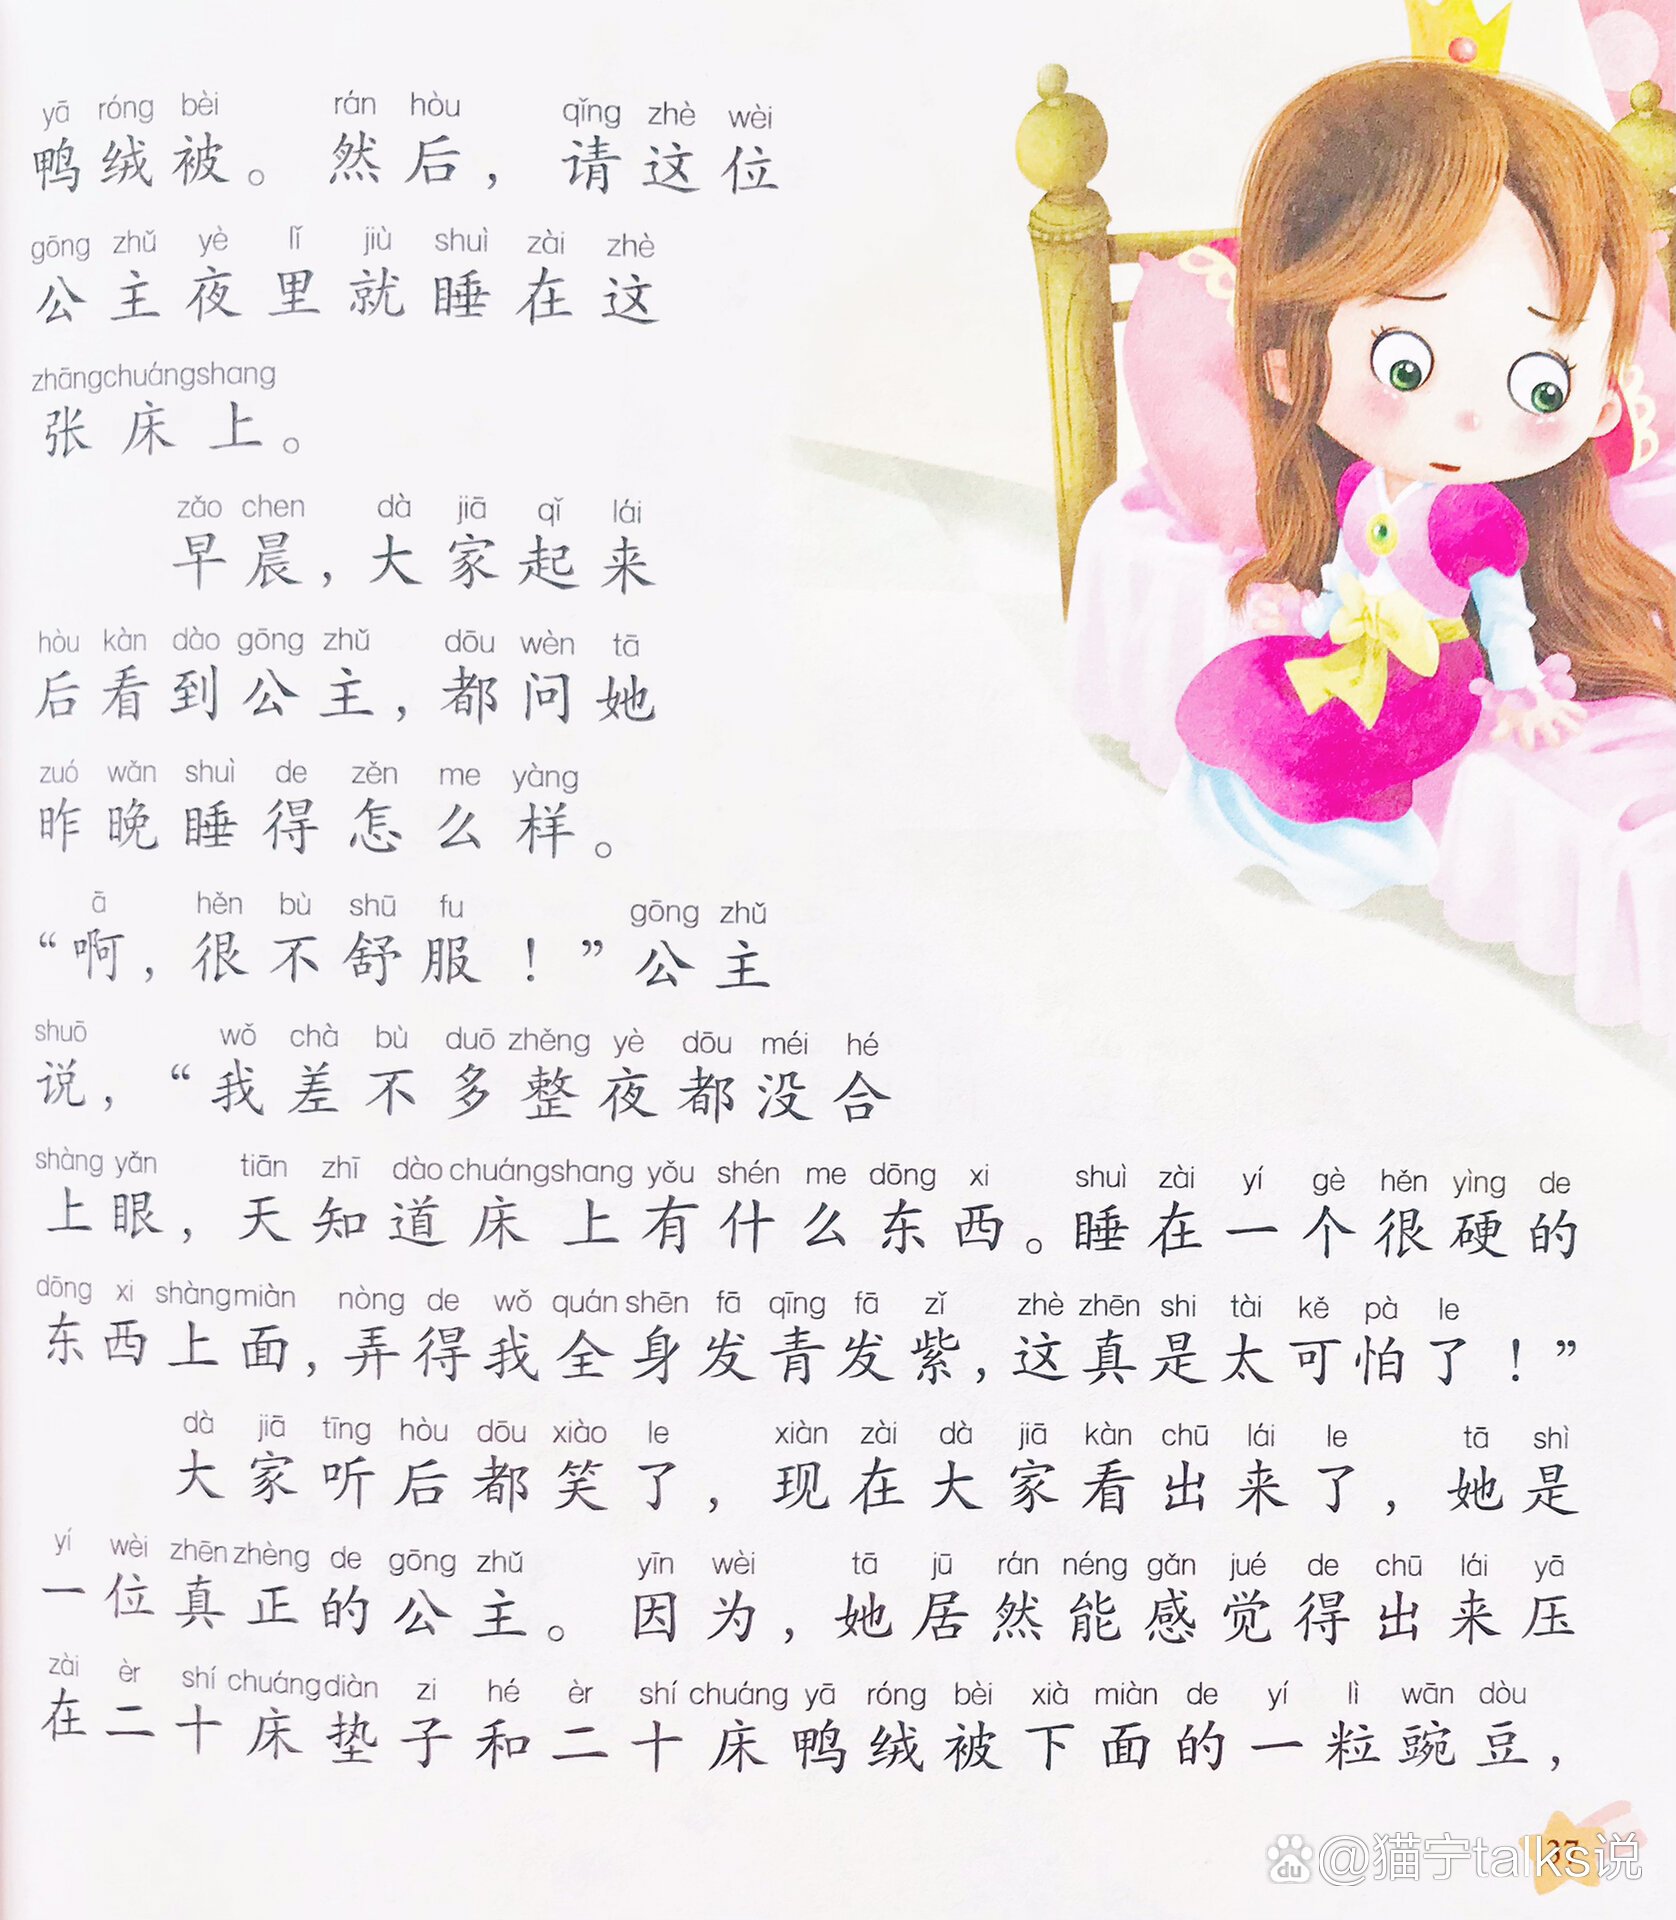 yā róng bèi rán hòu qǐng zhè wèi
鸭绒被。然后，请这位
gōng zhǔ yè lǐ jiù shuì zài zhè
公主夜里就睡在这
zhāngchuángshang
张床上。
zǎo chen dà jiā qǐ lái
早晨，大家起来
hòu kàn dào gōng zhǔ dōu wèn tā
后看到公主，都问她
zuó wǎn shuì de zěn me yàng
昨晚睡得怎么样。
ā hěn bù shū fu gōng zhǔ
“啊，很不舒服！”公主
shuō wǒ chà bù duō zhěng yè dōu méi hé
说，“我差不多整夜都没合
shàng yǎn tiān zhī dào chuángshang yǒu shén me dōng xi shuì zài yí gè hěn yìng de
上眼，天知道床上有什么东西。睡在一个很硬的
dōng xi shàngmiàn nòng de wǒ quán shēn fā qīng fā zǐ zhè zhēn shi tài kě pà le
东西上面，弄得我全身发青发紫，这真是太可怕了！”
dà jiā tīng hòu dōu xiào le xiàn zài dà jiā kàn chū lái le tā shì
大家听后都笑了，现在大家看出来了，她是
yí wèi zhēn zhèng de gōng zhǔ yīn wèi tā jū rán néng gǎn jué de chū lái yā
一位真正的公主。因为，她居然能感觉得出来压
zài èr shí chuángdiàn zi hé èr shí chuáng yā róng bèi xià miàn de yí lì wān dòu
在二十床垫子和二十床鸭绒被下面的一粒豌豆，
37
du @猫宁talks说